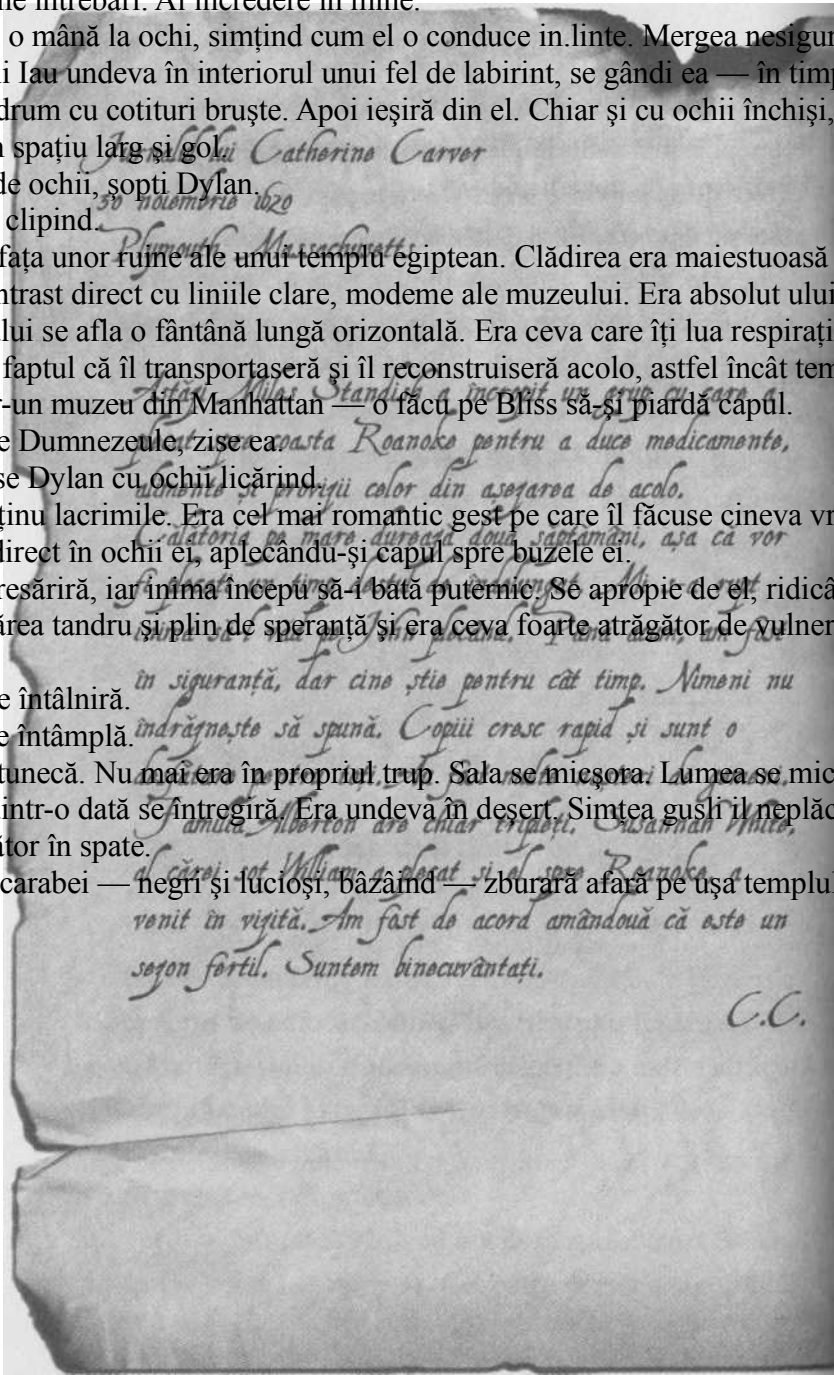 ne întrebări. Ai încredere în mine.
o mână la ochi, simţind cum el o conduce in.linte. Mergea nesigur
i Iau undeva în interiorul unui fel de labirint, se gândi ea — în timp
drum cu cotituri bruşte. Apoi ieşiră din el. Chiar şi cu ochii închişi,
n spaţiu larg şi gol.
de ochii, şopti Dylan.
clipind.
faţa unor ruine ale unui templu egiptean. Clădirea era maiestuoasă
ntrast direct cu liniile clare, modeme ale muzeului. Era absolut ului
ului se afla o fântână lungă orizontală. Era ceva care îţi lua respiraţi
faptul că îl transportaseră şi îl reconstruiseră acolo, astfel încât tem
r-un muzeu din Manhattan — o făcu pe Bliss să-şi piardă capul.
e Dumnezeule, zise ea.
se Dylan cu ochii licărind.
ţinu lacrimile. Era cel mai romantic gest pe care îl făcuse cineva vr
direct în ochii ei, aplecându-şi capul spre buzele ei.
resăriră, iar inima începu să-i bată puternic. Se apropie de el, ridicâ
ărea tandru şi plin de speranţă şi era ceva foarte atrăgător de vulner
e întâlniră.
e întâmplă.
tunecă. Nu mai era în propriul trup. Sala se micşora. Lumea se mic
intr-o dată se întregiră. Era undeva în deşert. Simţea gusli il neplăc
ător în spate.
carabei — negri şi lucioşi, bâzâind — zburară afară pe uşa templul
Jurnalul lui Catherine Carver
30 noiembrie 1620
Plymouth, Massachusetts
Astăzi Miles Standish a încropit un grup cu care a
plecat spre coasta Roanoke pentru a duce medicamente,
alimente şi provizii celor din aşezarea de acolo.
Călătoria pe mare durează două săptămâni, aşa că vor
fi plecaţi un timp destul de îndelungat. Mi s-a rupt
inima să-l văd pe John plecând. Până acum, am fost
în siguranţă, dar cine ştie pentru cât timp. Nimeni nu
îndrăzneşte să spună. Copiii cresc rapid şi sunt o
pentru toţi. de gemeni.
Familia Alberton are chiar tripleţi. Susannah White,
al cărei soţ William a plecat şi el spre Roanoke, a
venit în vizită. Am fost de acord amândouă că este un
sezon fertil. Suntem binecuvântaţi.
C.C.